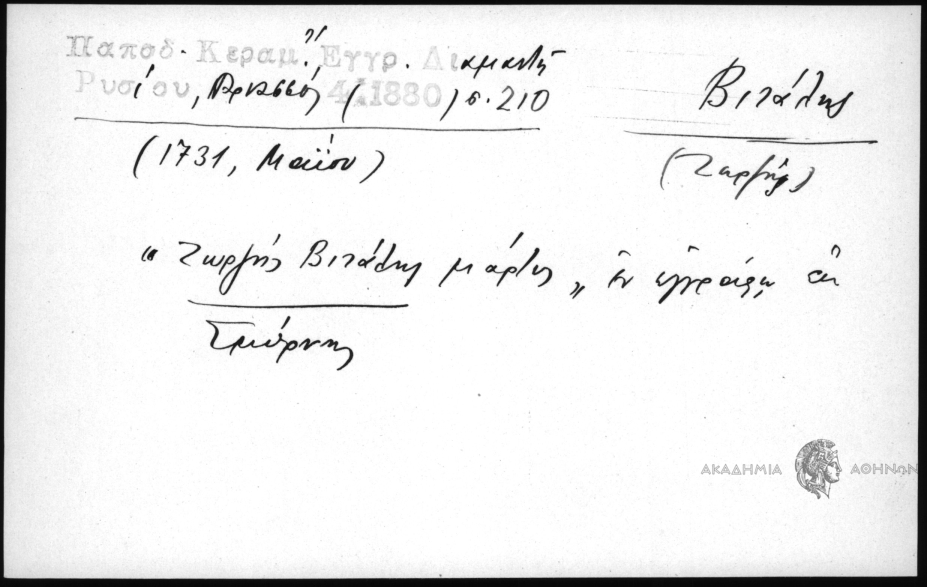 Παπαδ. Κεραμ. Εγγρ. Διαμαντῆ
Ρυσίου, Παρνασσός 4 (1880) σ. 210
Βιτάλης
(1731, Μαΐου)
(Τζωρζής)
" Τζωρζής Βιτάλης μάρτυς " ἐν ἐγγράφῳ ἐκ
Σμύρνης
ΑΚΑΔΗΜΙΑ ΑΘΗΝΩΝ